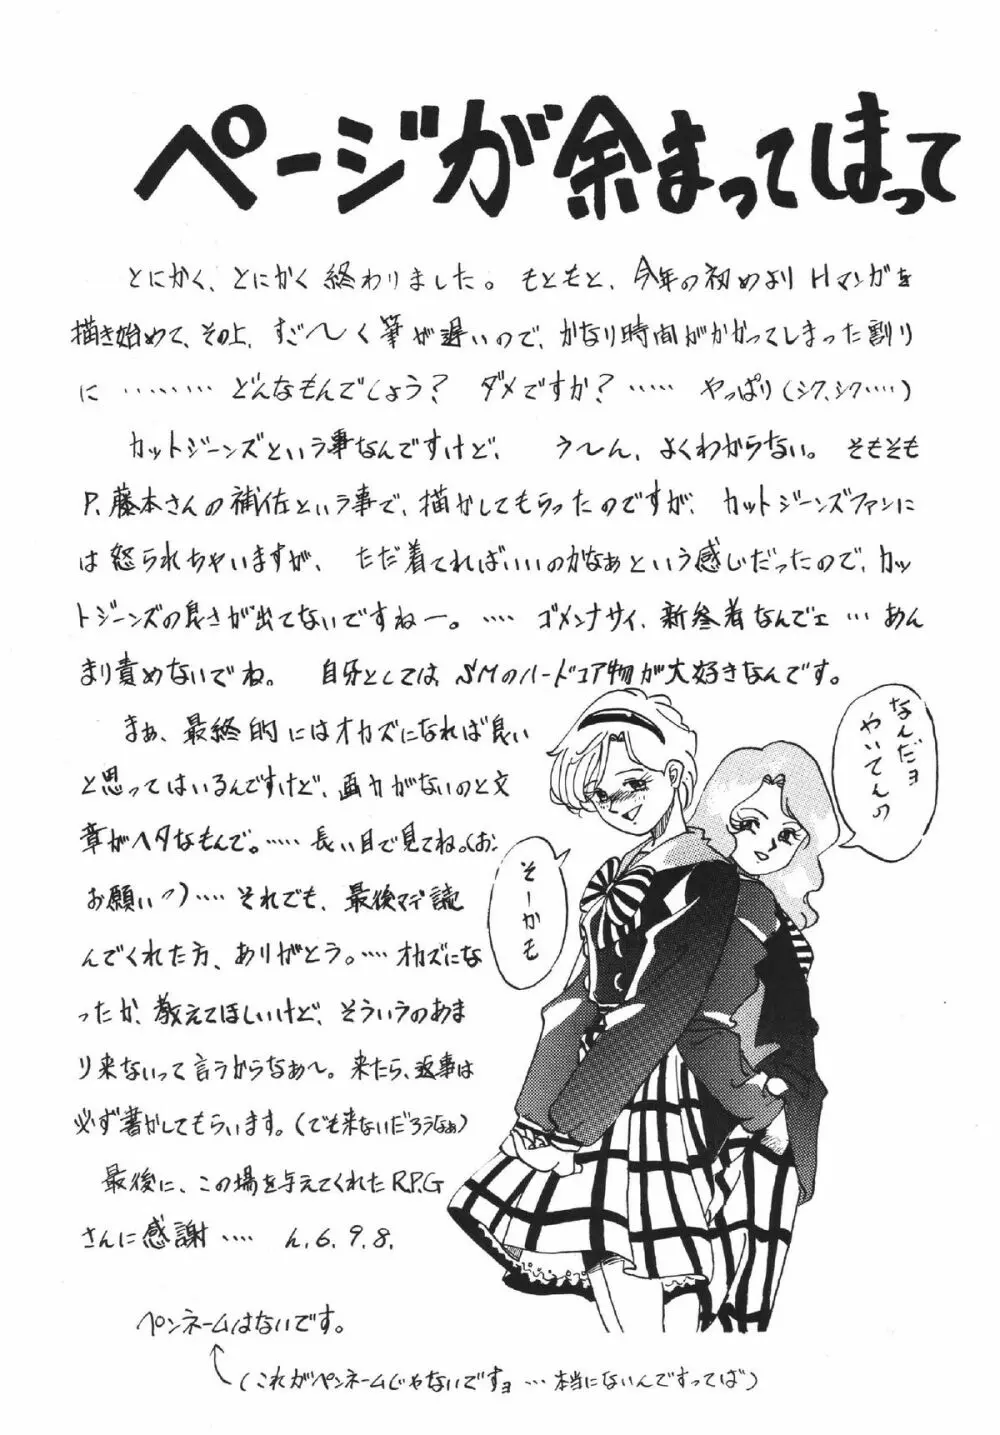 ページが余まってしまって
とにかく、とにかく終わりました。もともと、今年の初めよりHマンガを
描き始めて、その上、すご〜く筆が遅いので、かなり時間がかかってしまった割り
に………どんなもんでしょう？ダメですか？……やっぱり（シク、シク‥‥）
カットジーンズという事なんですけど、う〜ん、よくわからない。そもそも
P.藤本さんの補佐という事で、描かしてもらったのですが、カットジーンズファンに
は怒られちゃいますが、ただ着てればいいのかなぁという感じだったので、カッ
トジーンズの良さが出てないですねー。‥‥ゴメンナサイ、新参者なんでェ…あん
まり責めないでね。自分としては、SMのハードコア物が大好きなんです。
まぁ、最終的にはオカズになれば良い
と思ってはいるんですけど、画力がないのと文
章がヘタなもんで。‥‥‥長い目で見てね。（お、
お願いっ）‥‥それでも、最後マデ読
んでくれた方、ありがとう。‥‥オカズにな
ったか、教えてほしいけど、そういうのあま
り来ないって言うからなぁ〜。来たら、返事は
必ず書かしてもらいます。（でも来ないだろうなぁ）
最後に、この場を与えてくれたR.P.G
さんに感謝‥‥ん.6.9.8.
なんだョ
やいてんの
そーかも
ペンネームはないです。
（これがペンネームじゃないですョ…本当にないんですってば）